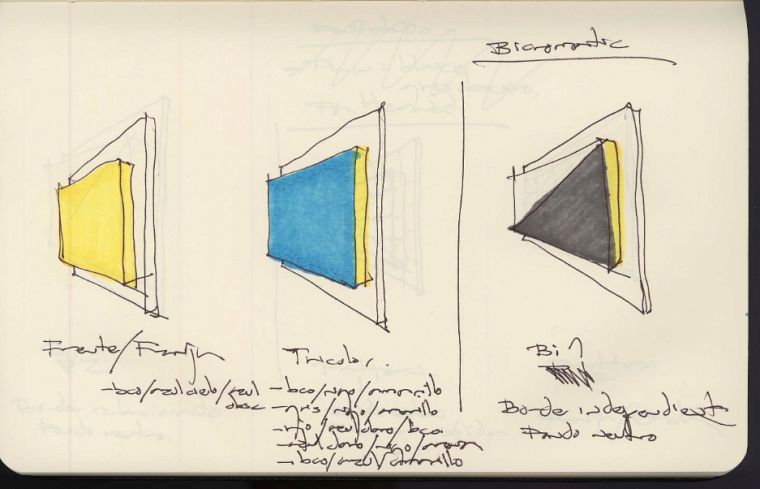 Bicromatic
Frente/Franja
-bco/azul cielo/azul
obsc
Tricolor.
-bco/rojo/amarillo
-gris/rojo/amarillo
-rojo/azul claro/bco.
-azul claro/rojo/
-bco/azul/amarillo
Bi 1
Borde independiente
Fondo neutro